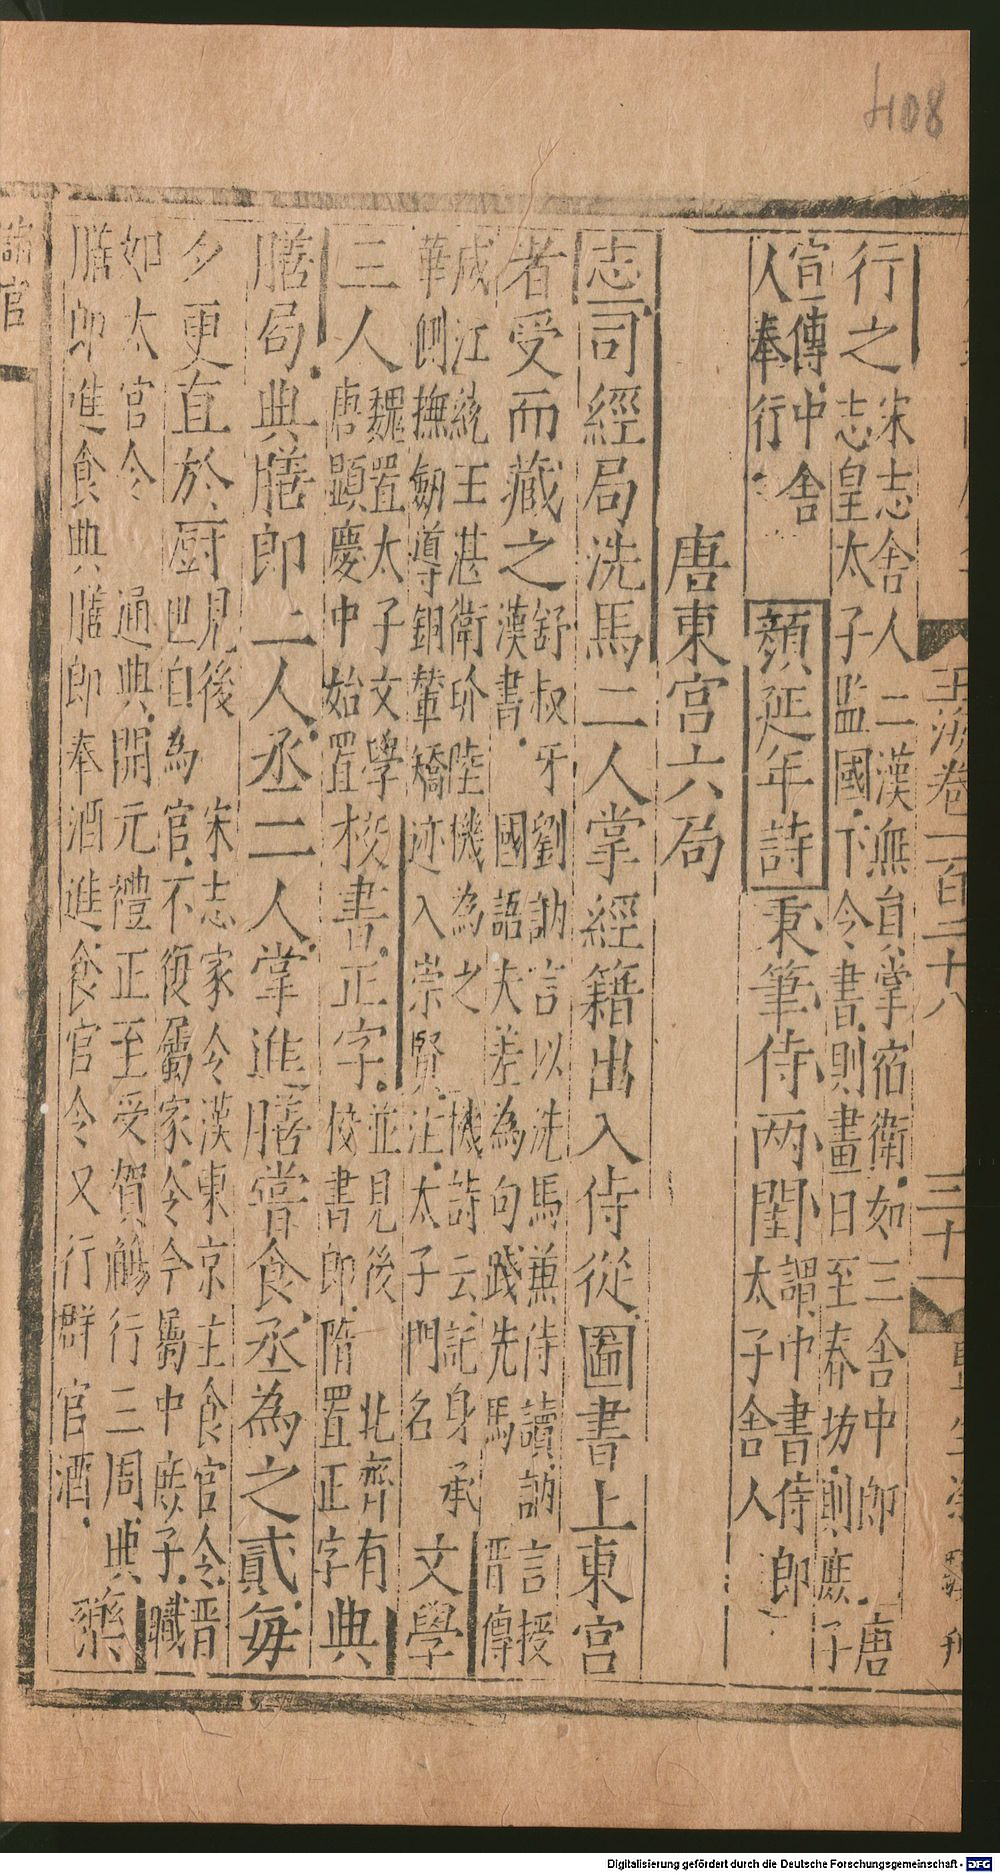 408
玉海卷一百二十八 三十一
行之宋志舍人二漢無員掌宿衛如三舍中郎唐
志皇太子監國下令書則畫日至春坊則庶子
宣傳中舍
人奉行
顏延年詩秉筆侍两閨謂中書侍郎
太子舍人
唐東宮六局
志司經局洗馬二人掌經籍出入侍從圖書上東宮
者受而藏之舒叔牙劉訥言以洗馬兼侍讀訥言授
漢書國語夫差為句踐先馬晉傅
咸江統王湛衛玠陸機為之機詩云託身承
華側撫劒導銅輦矯迹入崇賢注太子門名文學
三人魏置太子文學
唐顯慶中始置校書正字並見後北齊有
校書郎隋置正字典
膳局典膳郎二人丞二人掌進膳嘗食丞為之貳每
夕更直於厨見後宋志家令漢東京主食官令晉
也自為官不復屬家令今屬中庶子職
如太官令通典開元禮正至受賀觴行三周典
膳郎進食典膳郎奉酒進食官令又行群官酒藥
官